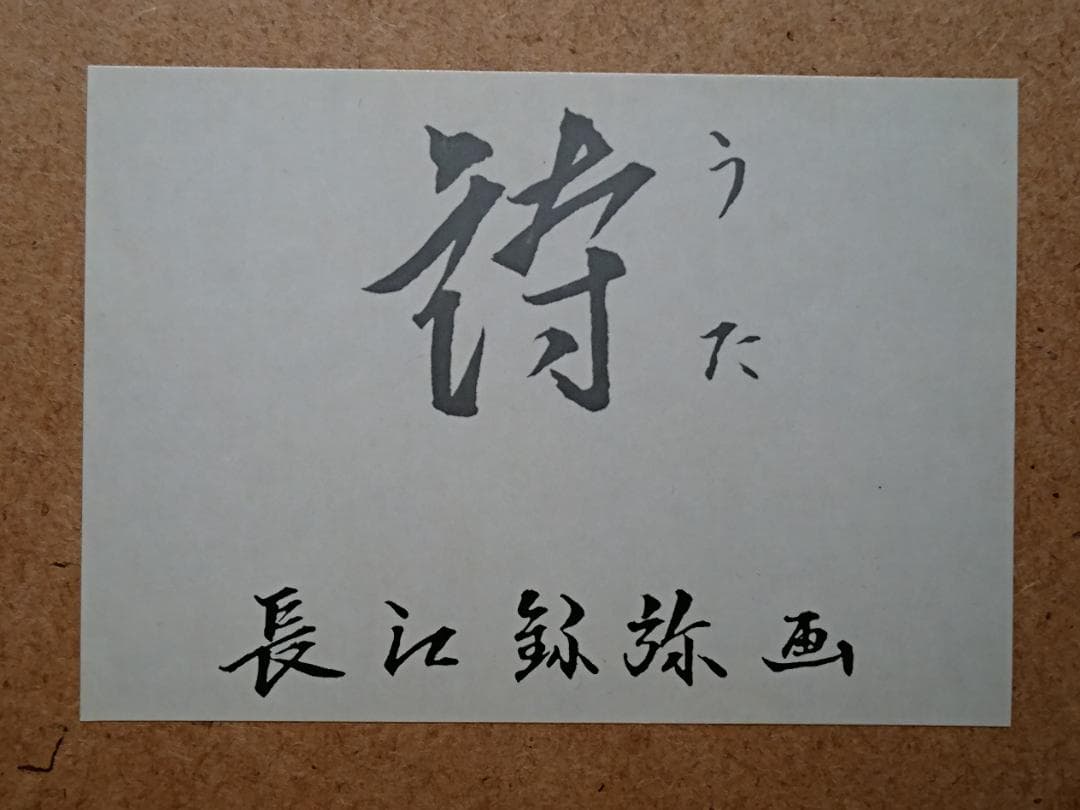 詩
うた
長江録弥画